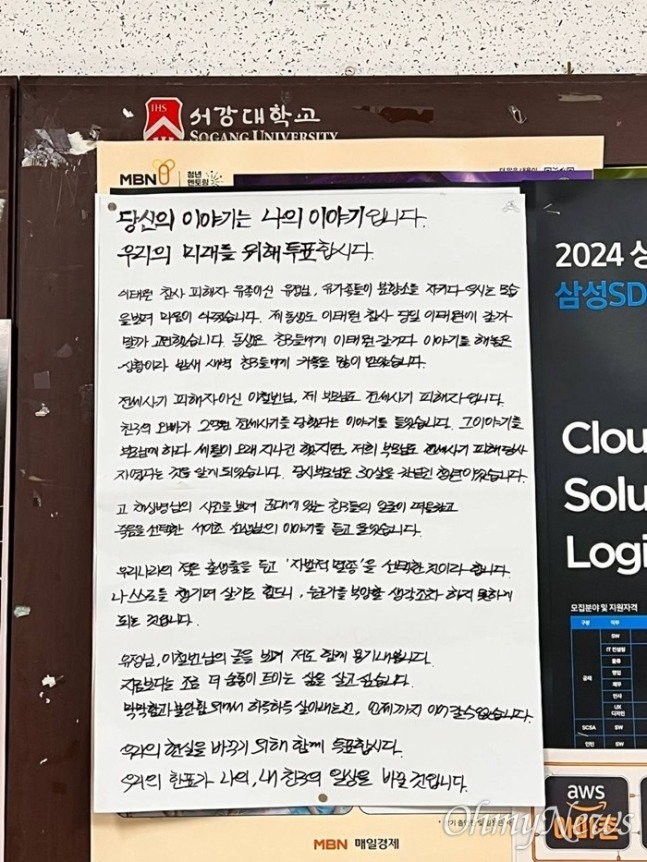 IHS
서강대학교
SOGANG UNIVERSITY
MBN
청년
멘토링
당신의 이야기는 나의 이야기입니다.
우리의 미래를 위해 투표합시다.
이태원 참사 피해자 유족이신 유정님, 유가족들이 분향소를 지키다 우시는 모습
을 보며 마음이 아팠습니다. 제 동생도 이태원 참사 당일 이태원에 갈까
말까 고민했습니다. 동생은 친구들에게 이태원 간다고 이야기를 해놓은
상황이라 밤새 새벽 친구들에게 카톡을 많이 받았습니다.
전세사기 피해자이신 이철빈님, 제 부모님도 전세사기 피해자입니다.
친구의 오빠가 2억원 전세사기를 당했다는 이야기를 들었습니다. 그 이야기를
부모님께 하다 세월이 오래 지나긴 했지만, 저희 부모님도 전세사기 피해 당사
자였다는 것을 알게 되었습니다. 당시 부모님은 30살을 갓 넘긴 청년이었습니다.
고 채상병님의 사건을 보며 군대에 있는 친구들의 얼굴이 떠올랐고
죽음을 선택한 서이초 선생님의 이야기를 듣고 울었습니다.
우리나라의 적은 출생률을 두고 '자발적 멸종'을 선택한 것이라 합니다.
나 스스로를 챙기며 살기도 힘드니, 누군가를 부양할 생각조차 하지 못하게
되는 것입니다.
유정님, 이철빈님의 글을 보며 저도 함께 용기내봅니다.
지금보다는 조금 더 숨통이 트이는 삶을 살고 싶습니다.
막막함과 불안함 속에서 하루하루 살아내는 건, 언제까지 이어갈 수 없습니다.
우리의 현실을 바꾸기 위해 함께 투표합시다.
우리의 한표가 나의, 내 친구의 일상을 바꿀 것입니다.
2024 상
삼성SD
Clou
Solu
Logi
모집분야 및 지원자격
구분
직무
공채
SW
IT 컨설팅
물류
영업
재무
인사
UX
디자인
SCSA
SW
인턴
SW
aws
MBN 매일경제
OhmyNews